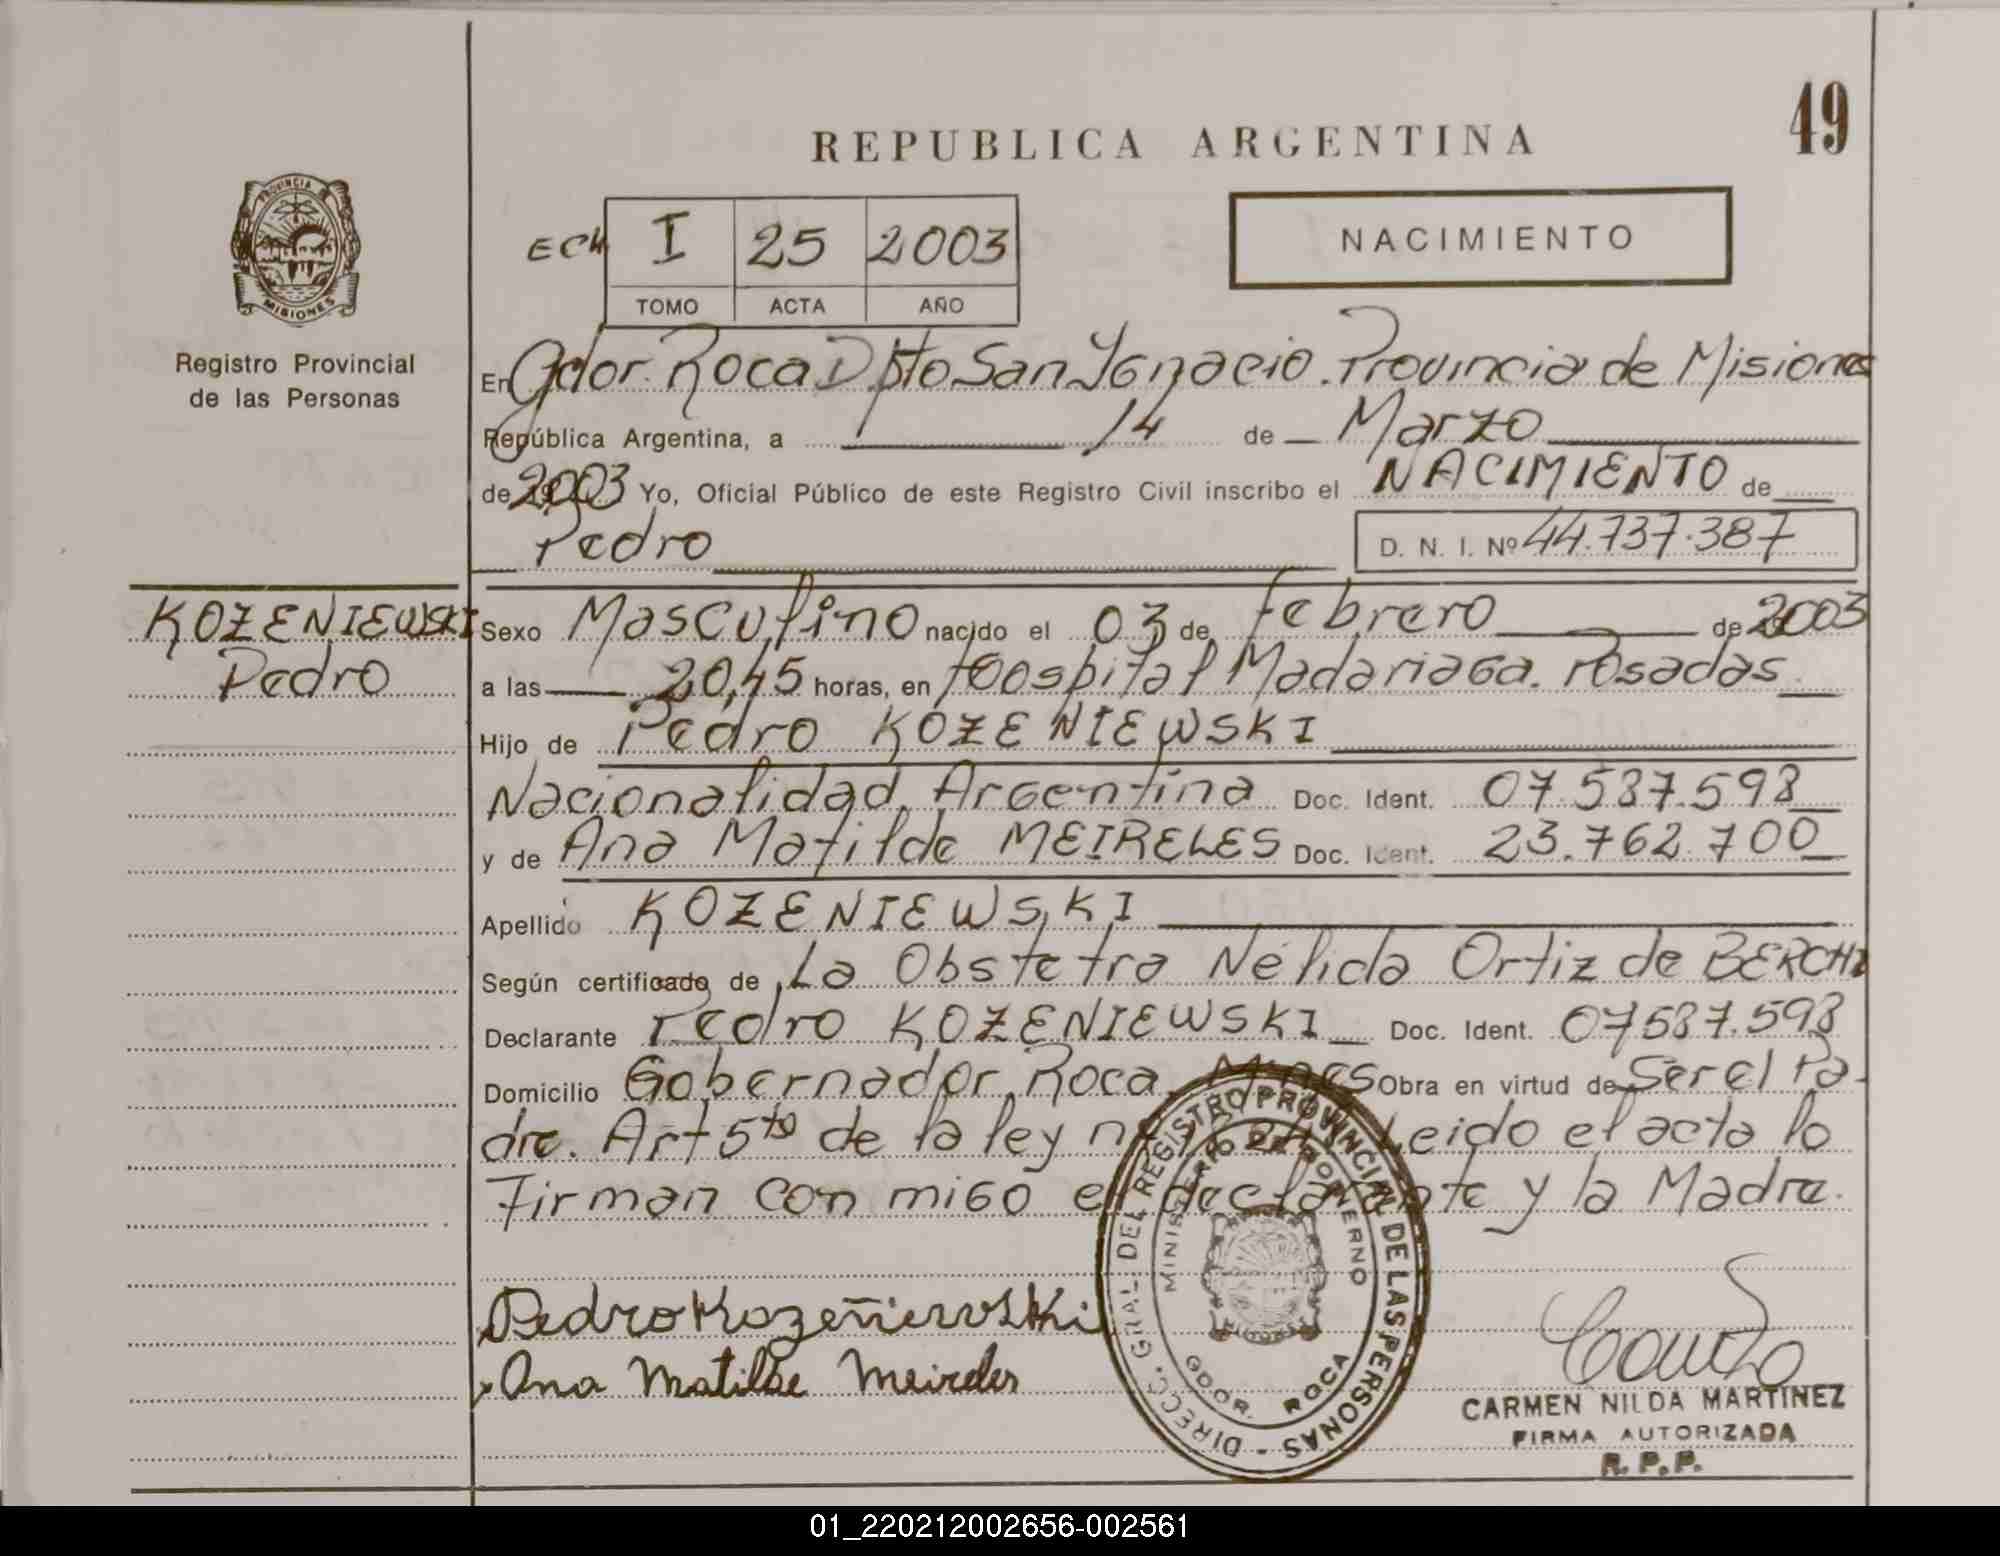 49
REPUBLICA ARGENTINA
PROVINCIA
MISIONES
Registro Provincial
de las Personas
I 25 2003
TOMO ACTA AÑO
NACIMIENTO
En Gdor. Roca Dpto San Ignacio. Provincia de Misiones
República Argentina, a 14 de Marzo
de 2003 Yo, Oficial Público de este Registro Civil inscribo el NACIMIENTO de
Pedro D. N. I. Nº 44.737.387
KOZENIEWSKI
Pedro
Sexo Masculino nacido el 03 de febrero de 2003
a las 20,45 horas, en Hospital Madariaga. Posadas
Hijo de Pedro KOZENIEWSKI
Nacionalidad Argentina Doc. Ident. 07.587.598
y de Ana Matilde MEIRELES Doc. Ident. 23.762.700
Apellido KOZENIEWSKI
Según certificado de La Obstetra Nélida Ortiz de
Declarante Pedro KOZENIEWSKI Doc. Ident. 07587.598
Domicilio Gobernador Roca, Mnes Obra en virtud de Ser el Pa-
dre. Art 5to de la ley Leido el acta lo
Firman con migo el declarante y la Madre.
Pedro Kozeñiewski
Ana Matilde Meireles
DIRECC. GRAL DEL REGISTRO PROVINCIAL DE LAS PERSONAS
MINISTERIO DE GOBIERNO
GDOR. ROCA
CARMEN NILDA MARTINEZ
FIRMA AUTORIZADA
R. P. P.
01_220212002656-002561